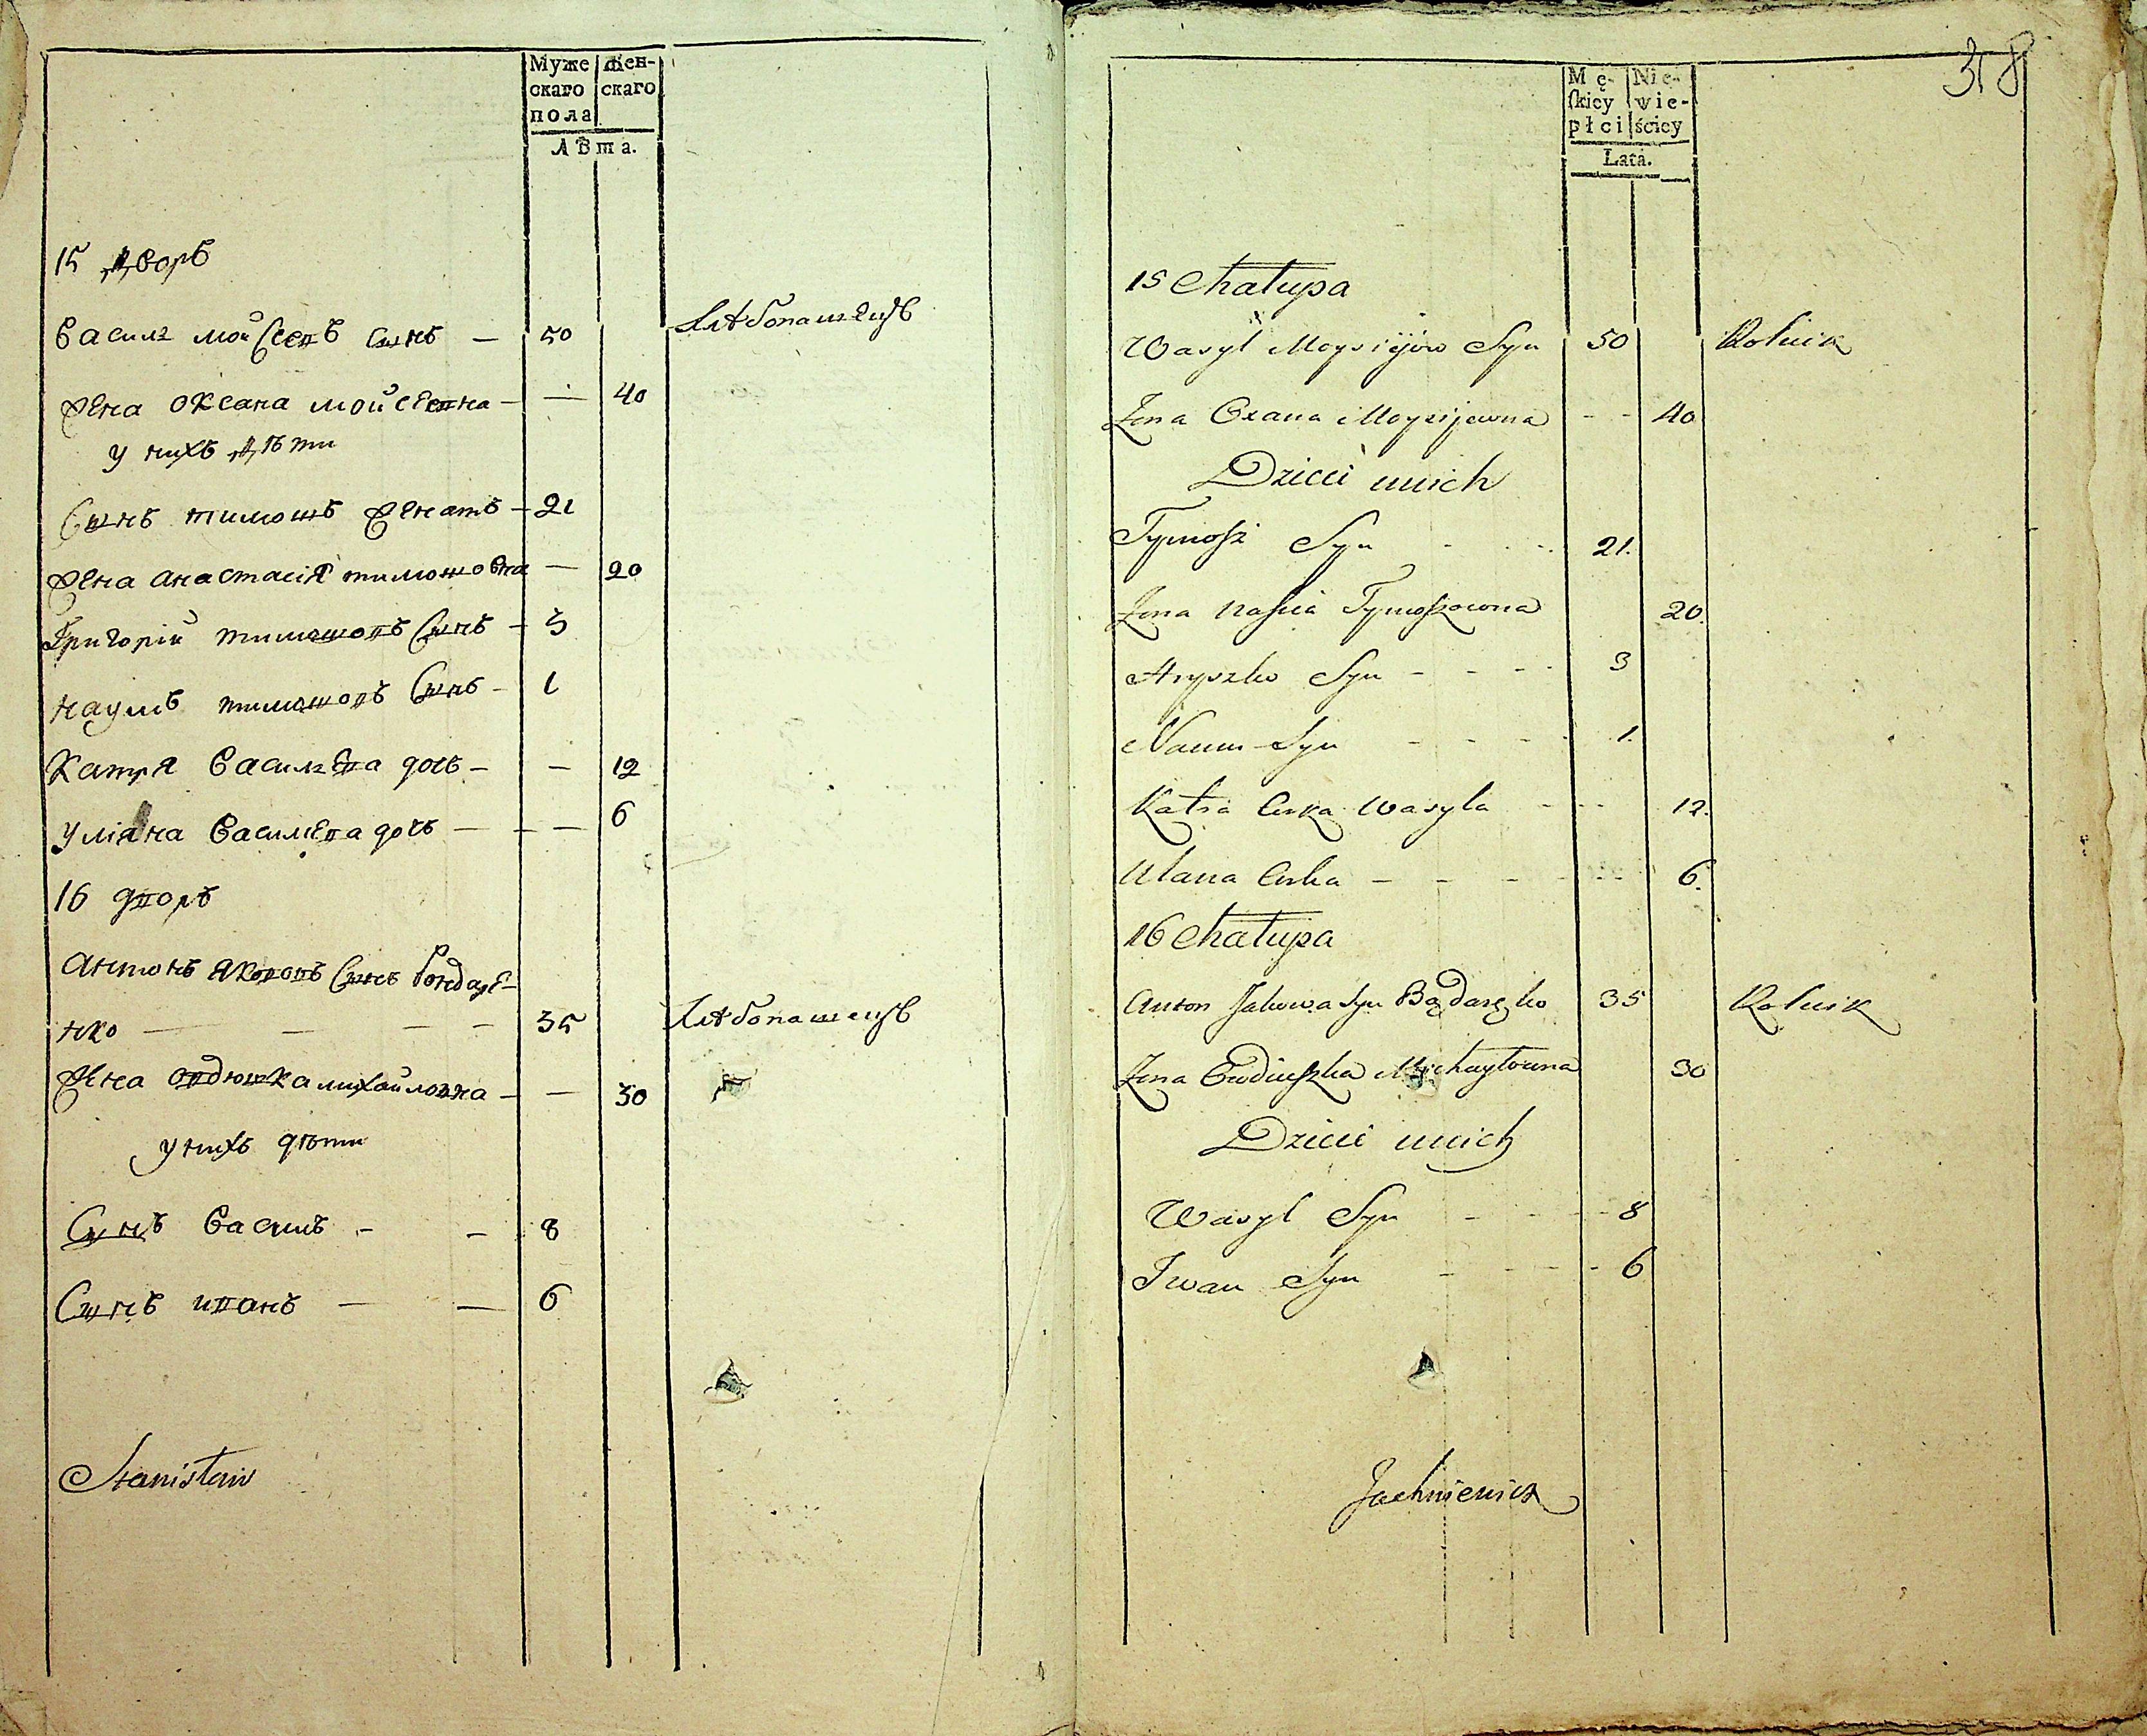 Муже
скаго
пола
Жен-
скаго
Лѣта.
15 дворъ
Василь мойсеевъ сынъ — 50 хлѣбопашецъ
жена оксана мойсеевна — — 40
у нихъ дѣти
Сынъ тимошъ женатъ — 21
жена анастасія тимошовна — 20
Григорій тимошовъ Сынъ — 3
наумъ тимошовъ Сынъ — 1
Катря Василева дочь — — 12
уліяна Василева дочь — — 6
16 дворъ
антонъ якововъ Сынъ бондаре-
нко — — — — 35 хлѣбопашецъ
жена овдюшка михайловна — — 30
у нихъ дѣти
Сынъ Василь — — 8
Сынъ иванъ — — 6
Stanisław
318
Mę-
skiey
płci
Nie-
wie-
ściey
Lata.
15 Chałupa
Wasyl Moysiijów Syn 50 Rolnik
Żona Oxana Moysijewna - - 40
Dzieci unich
Tymosz Syn - - - 21.
Żona Naścia Tymoszowna 20.
Hryszko Syn - - - - 3
Naum Syn - - - - 1.
Katra Curka Wasyla - - - 12.
Ulana Curka - - - - 6.
16 Chałupa
Anton Jakowa Syn Bądaręko 35 Rolnik
Żona Ewdiuszka Michayłowna 30
Dzieci unich
Wasyl Syn - - - - 8
Iwan Syn - - - - 6
Jachniewicz